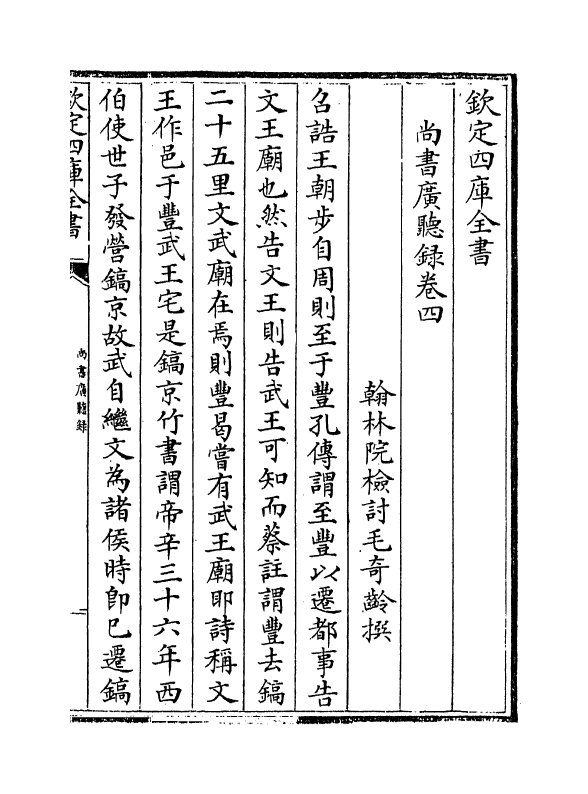 欽定四庫全書
尚書廣聽録卷四
翰林院檢討毛奇齡撰
召誥王朝步自周則至于豐孔傳謂至豐以遷都事告
文王廟也然告文王則告武王可知而蔡註謂豐去鎬
二十五里文武廟在焉則豐曷嘗有武王廟耶詩稱文
王作邑于豐武王宅是鎬京竹書謂帝辛三十六年西
伯使世子發營鎬京故武自繼文為諸侯時即已遷鎬
欽定四庫全書
尚書廣聽録